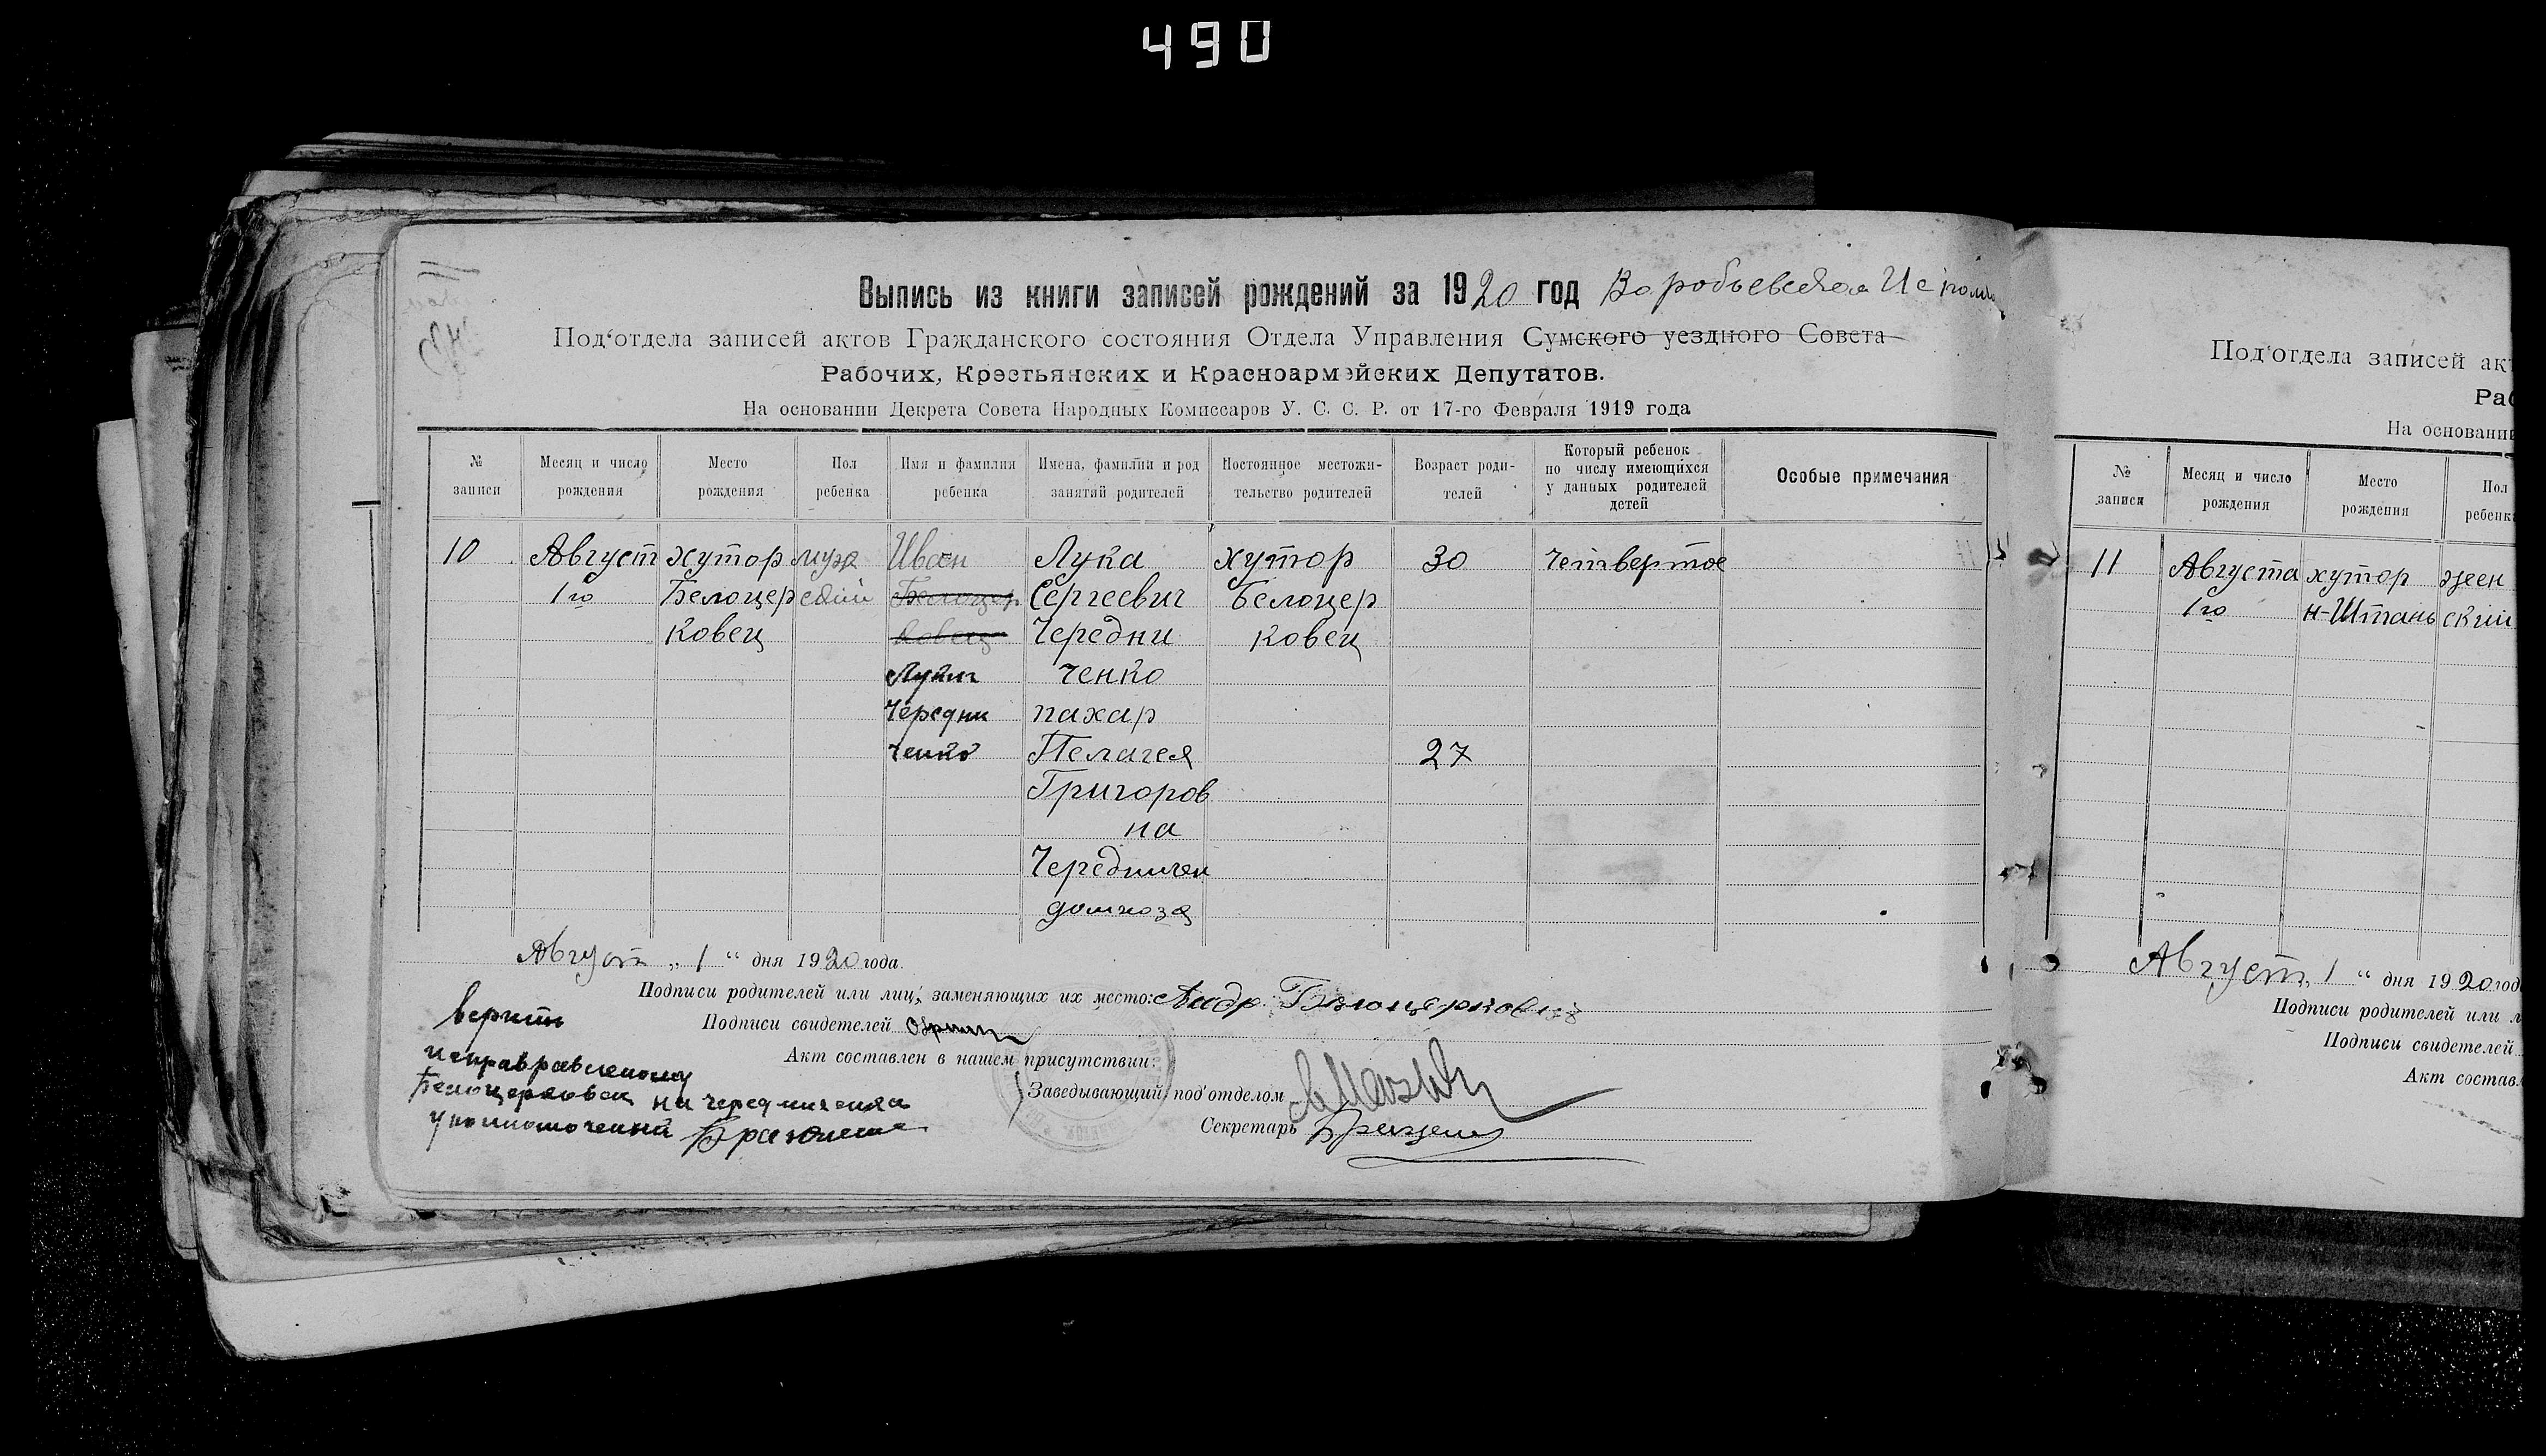 490
Выпись из книги записей рождений за 1920 год Воробьевской Исполк
Под‘отдела записей актов Гражданского состояния Отдела Управления Сумского уездного Совета
Рабочих, Крестьянских и Красноармейских Депутатов.
На основании Декрета Совета Народных Комиссаров У. С. С. Р. от 17-го Февраля 1919 года
№ записи
Месяц и число рождения
Место рождения
Пол ребенка
Имя и фамилия ребенка
Имена, фамилии и род занятий родителей
Постоянное местожительство родителей
Возраст родителей
Который ребенок по числу имеющихся у данных родителей детей
Особые примечания
10 Август хутор муж Иван Лука хутор 30 четвертое
1го Белоцер ской Белоцер Сергеевич Белоцер
ковец ковец Чередни ковец
Чередни
ченко
ченко пахар
Пелагея 27
Григоров
на
Чередничен
домхоз
Август „ 1 “ дня 1920 года.
Подписи родителей или лиц, заменяющих их место: Андр.
Подписи свидетелей
Акт составлен в нашем присутствии:
Заведывающий под‘отделом
Секретарь
верить
исправленому
Белоцерковец на Чередниченка
уполномоченый
Под‘отдела записей ак
Раб
На основании
№ записи
Месяц и число рождения
Место рождения
Пол ребенка
11 Августа хутор жен
1го Н-Штань ский
Август „ 1 “ дня 1920 год
Подписи родителей или л
Подписи свидетелей
Акт составл